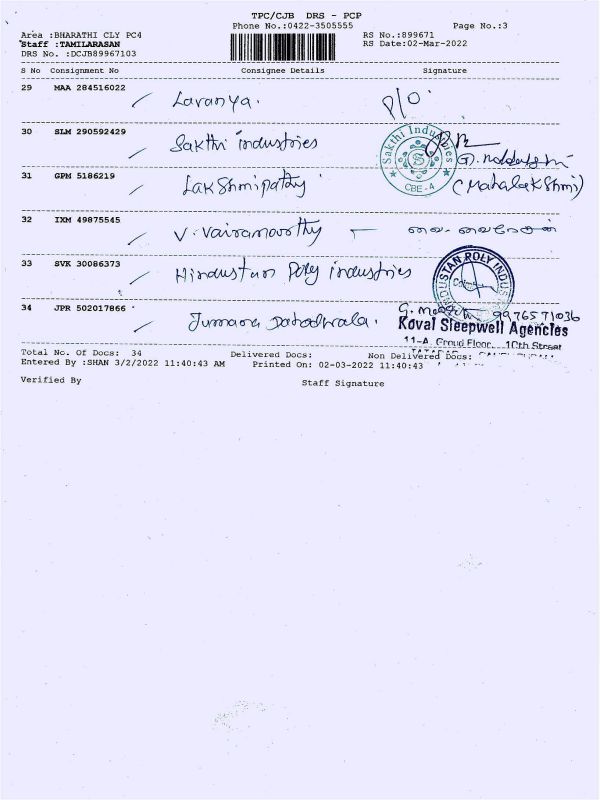 TPC/CJB DRS - PCP
Phone No.:0422-3505555 Page No.:3
Area :BHARATHI CLY PC4 RS No.:899671
Staff :TAMILARASAN RS Date:02-Mar-2022
DRS No. :DCJB89967103
S No Consignment No Consignee Details Signature
29 MAA 284516022 Lavanya. P/O
30 SLM 290592429 Sakthi industries
Sakthi Industries
CBE - 4
31 GPM 5186219 Lakshmipathy (Mahalakshmi)
32 IXM 49875545 V. Vairamoorthy
33 SVK 30086373 Hindustan Poly industries
HINDUSTAN POLY INDUS
34 JPR 502017866 Jumana 9976571036
Koval Sleepwell Agencies
11-A, Groud Floor, 10th Street
TATABAD,
Total No. Of Docs: 34 Delivered Docs: Non Delivered Docs:
Entered By :SHAN 3/2/2022 11:40:43 AM Printed On: 02-03-2022 11:40:43
Verified By Staff Signature